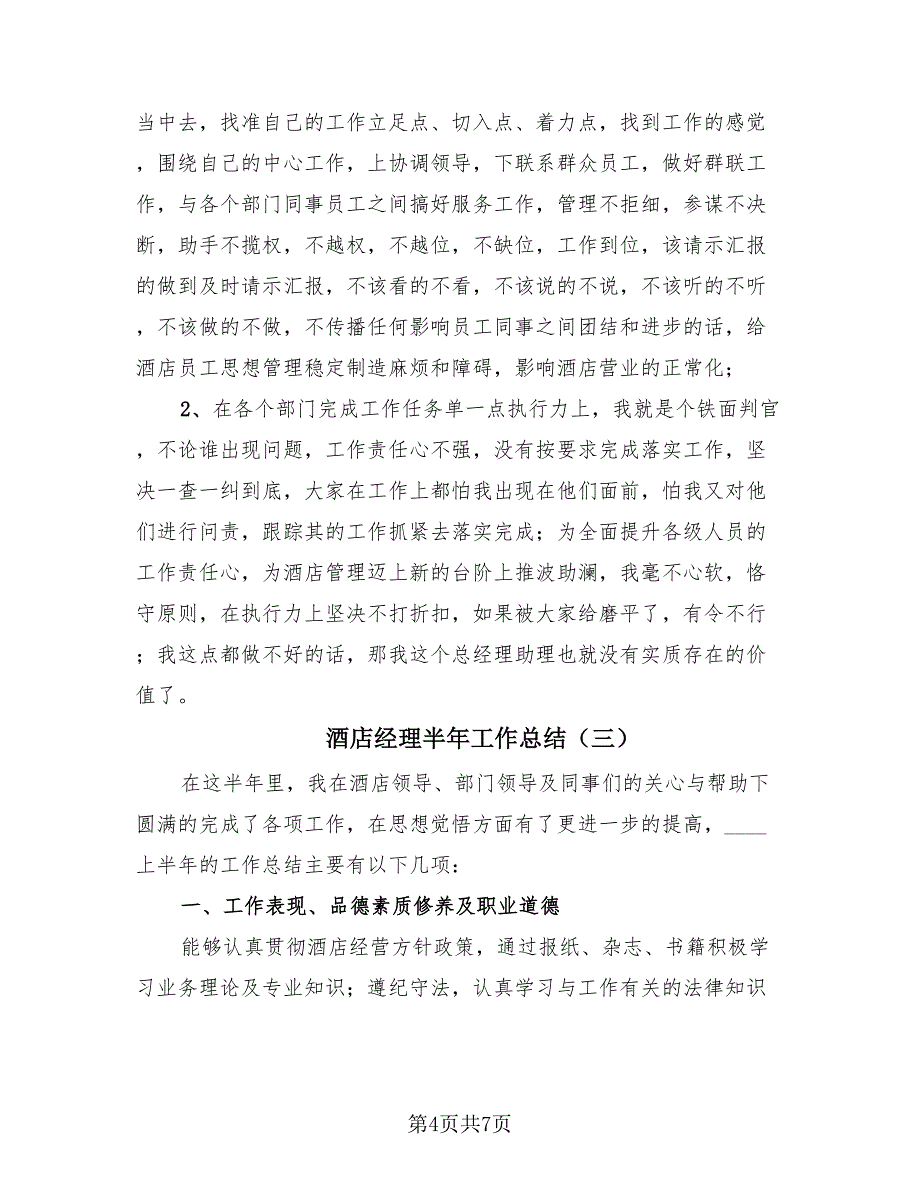 当中去，找准自己的工作立足点、切入点、着力点，找到工作的感觉
，围绕自己的中心工作，上协调领导，下联系群众员工，做好群联工
作，与各个部门同事员工之间搞好服务工作，管理不拒细，参谋不决
断，助手不揽权，不越权，不越位，不缺位，工作到位，该请示汇报
的做到及时请示汇报，不该看的不看，不该说的不说，不该听的不听
，不该做的不做，不传播任何影响员工同事之间团结和进步的话，给
酒店员工思想管理稳定制造麻烦和障碍，影响酒店营业的正常化；
2、在各个部门完成工作任务单一点执行力上，我就是个铁面判官
，不论谁出现问题，工作责任心不强，没有按要求完成落实工作，坚
决一查一纠到底，大家在工作上都怕我出现在他们面前，怕我又对他
们进行问责，跟踪其的工作抓紧去落实完成；为全面提升各级人员的
工作责任心，为酒店管理迈上新的台阶上推波助澜，我毫不心软，恪
守原则，在执行力上坚决不打折扣，如果被大家给磨平了，有令不行
；我这点都做不好的话，那我这个总经理助理也就没有实质存在的价
值了。
酒店经理半年工作总结（三）
在这半年里，我在酒店领导、部门领导及同事们的关心与帮助下
圆满的完成了各项工作，在思想觉悟方面有了更进一步的提高，____
上半年的工作总结主要有以下几项：
一、工作表现、品德素质修养及职业道德
能够认真贯彻酒店经营方针政策，通过报纸、杂志、书籍积极学
习业务理论及专业知识；遵纪守法，认真学习与工作有关的法律知识
第4页共7页